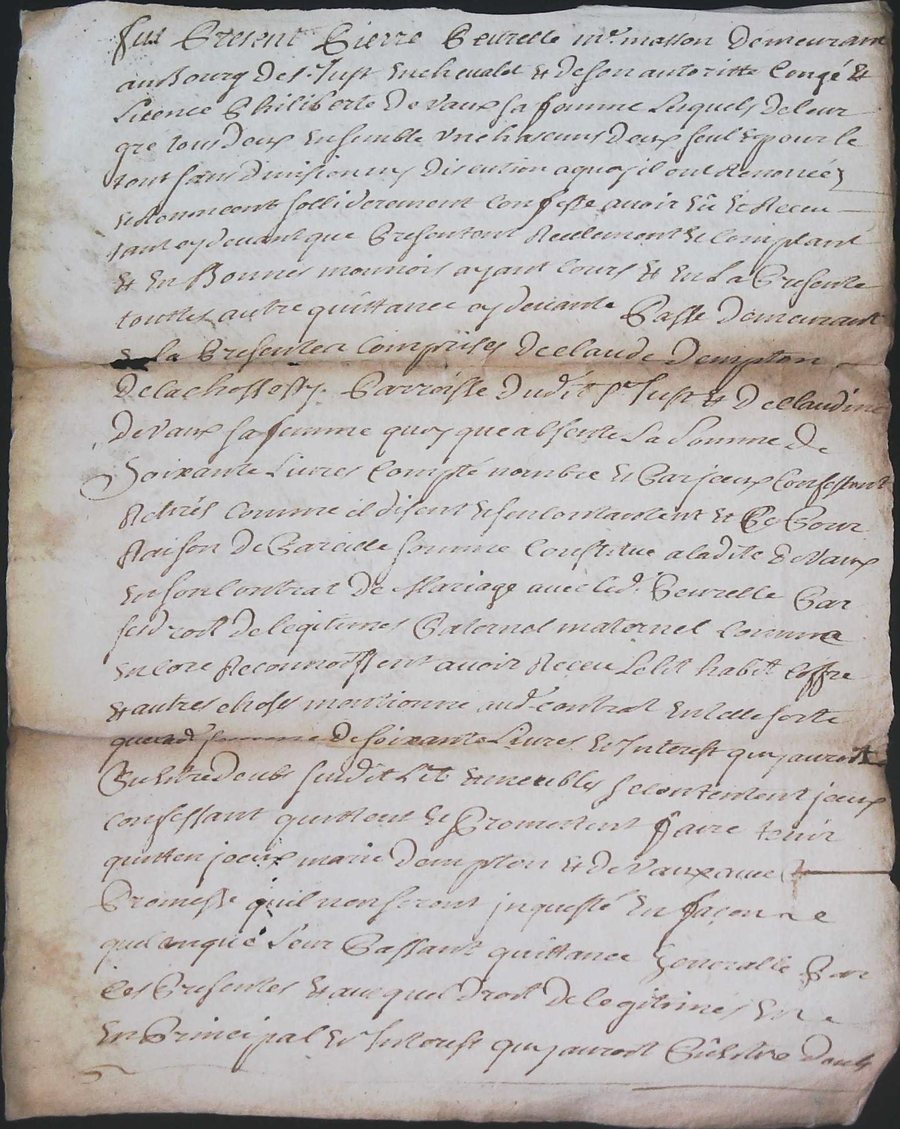 fut Present Pierre Peurelle mr. masson Demeurant
au Bourg De st. Just en chevalet & de son autoritte Congé &
Licence Philiberte De Vaux sa famme Lesquels de leur
gré tous deux Ensemble Vn chascuns deux seul & pour le
tout sans diuision ny Discution a quoy il ont Renoncé
& Renoncent sollidérement Confesse auoir Eü & Receu
tant cy deuant que Presentent Reelement & Comptant
& En Bonnes monnois ayant Cours & En La Presente
touttes autre quittance cy deuante Passe Demeurant
a La Presenten Comprises De Claude Dempton
De Parroisse Dudit st Just & De Claudine
De Vaux sa femme quoy que absente La Somme De
Soixante Liures Compté nombré & Par jceux Confessant
Retirés Comme il disent & sen contantent & Ce Pour
Raison De Pareille somme Constitué a ladite De Vaux
En son Contrat De Mariage auec led. Peurelle Par
ses droit de legitimes Paternel maternel Comme
Encore Reconnoissent auoir Receu Le lit habit Coffre
& autres chose mentionné aud contrat En telle sorte
que lad somme De soixante Liures & Interest quy auroit
Pu Estre deubt susdit Lit & meubles se contentent jceux
Confessant quittent & Promettent faire tenir
quitten jceux marie Dempton & de Vaux auec
Promesse quil nen seront jnquesté En façon
quelconque Leur Passant quittance Generalle Par
Ces Presentes & auequel droit de legitimes En
En Principal & Interest quy auroit Pu Estre doubt